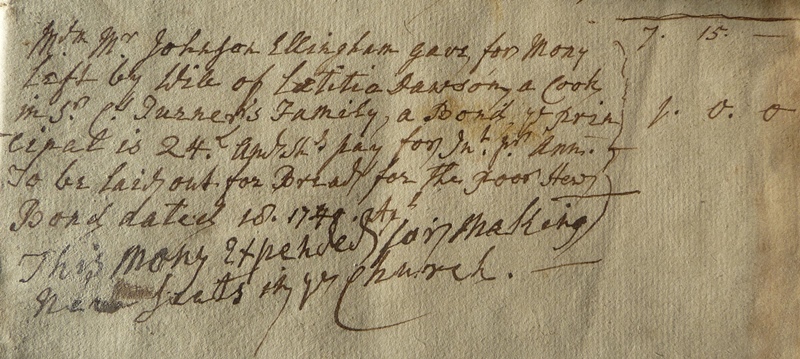 7. 15. —
Mdm Mr Johnson Ellingham gave for Mony
Left by Will of Lætitia Dawson, a Cook
in Sr C. Turner's Family, a Bond, ye prin 1. 0. 0
cipal is 24.l pay for Int. pr Ann. —
To be laid out for Bread for the poor
Bond dated 18. 174
This mony Expended for making
New Seats in ye Church. —